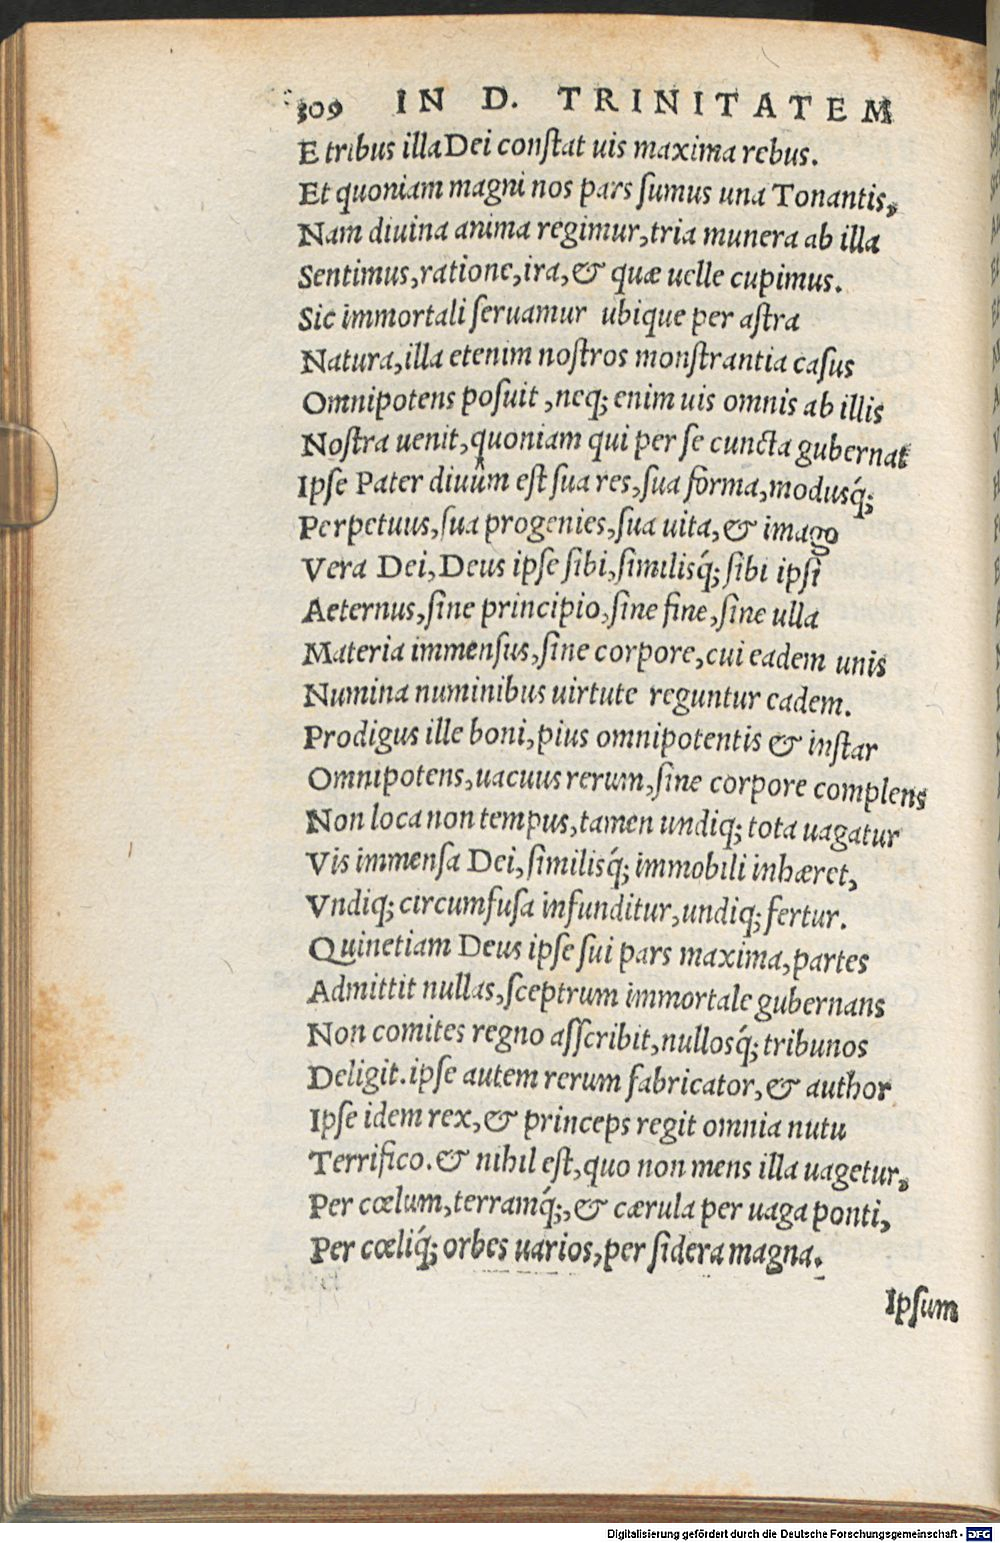 309 IN D. TRINITATEM
E tribus illa Dei conſtat uis maxima rebus.
Et quoniam magni nos pars ſumus una Tonantis,
Nam diuina anima regimur, tria munera ab illa
Sentimus, ratione, ira, & quæ uelle cupimus.
Sic immortali ſeruamur ubique per aſtra
Natura, illa etenim noſtros monſtrantia caſus
Omnipotens poſuit, neq; enim uis omnis ab illis
Noſtra uenit, quoniam qui per ſe cuncta gubernat
Ipſe Pater diuûm eſt ſua res, ſua forma, modusq́;
Perpetuus, ſua progenies, ſua uita, & imago
Vera Dei, Deus ipſe ſibi, ſimilisq́; ſibi ipſi
Aeternus, ſine principio, ſine fine, ſine ulla
Materia immenſus, ſine corpore, cui eadem unis
Numina numinibus uirtute reguntur eadem.
Prodigus ille boni, pius omnipotentis & inſtar
Omnipotens, uacuus rerum, ſine corpore complens
Non loca non tempus, tamen undiq; tota uagatur
Vis immenſa Dei, ſimilisq́; immobili inhæret,
Vndiq; circumfuſa infunditur, undiq; fertur.
Quinetiam Deus ipſe ſui pars maxima, partes
Admittit nullas, ſceptrum immortale gubernans
Non comites regno aſſcribit, nullosq́; tribunos
Deligit. ipſe autem rerum fabricator, & author
Ipſe idem rex, & princeps regit omnia nutu
Terrifico. & nihil eſt, quo non mens illa uagetur,
Per cœlum, terramq́;, & cærula per uaga ponti,
Per cœliq́; orbes uarios, per ſidera magna.
Ipſum
Digitalisierung gefördert durch die Deutsche Forschungsgemeinschaft - DFG